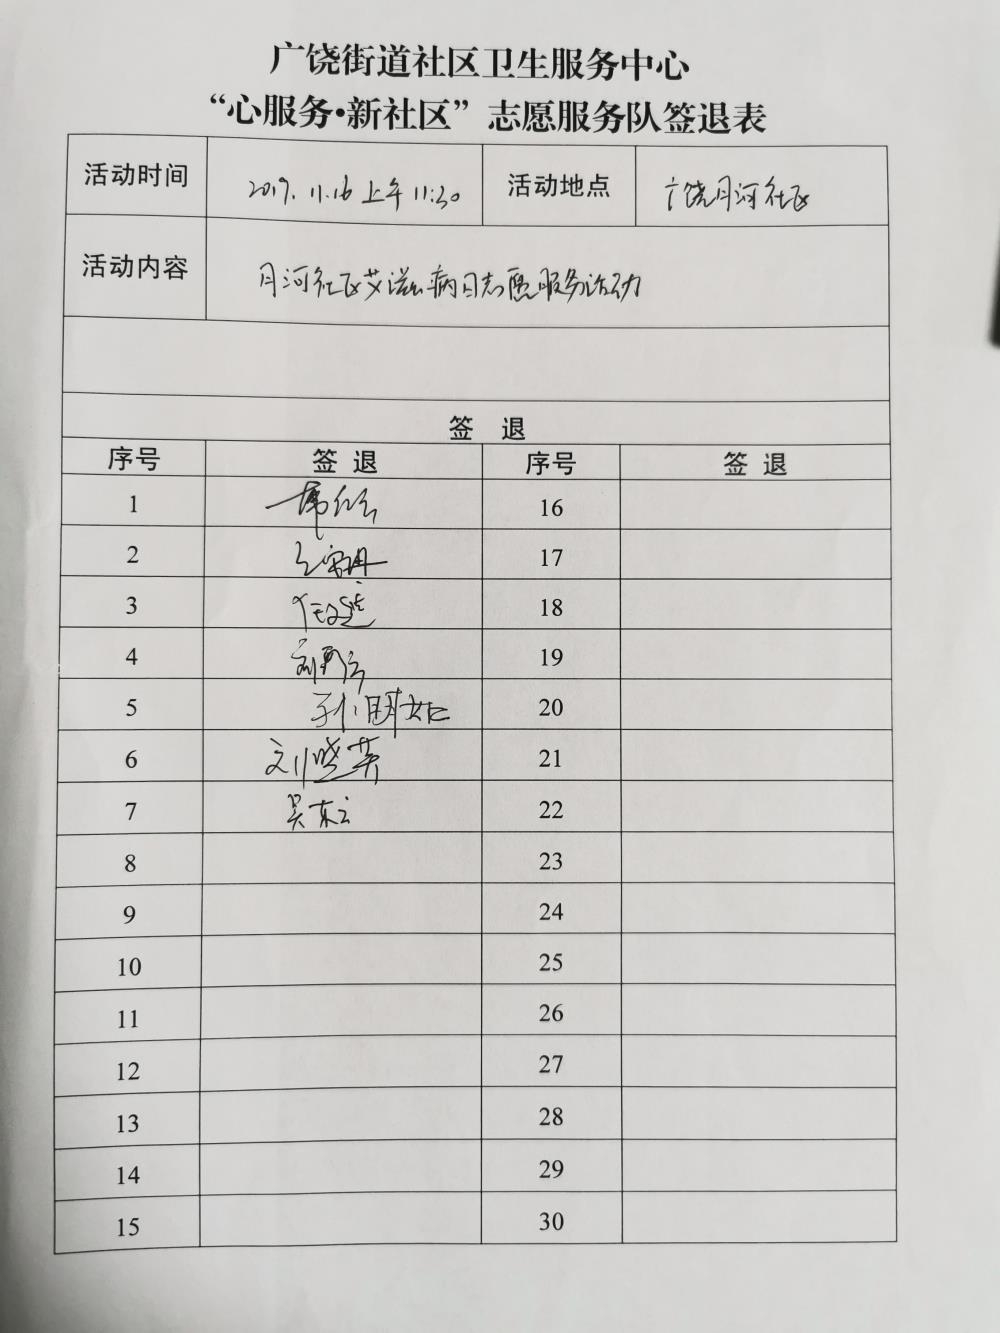 广饶街道社区卫生服务中心
“心服务·新社区”志愿服务队签退表
活动时间 2019.11.16 上午 11:30 活动地点 广饶月河社区
活动内容 月河社区艾滋病日志愿服务活动
签 退
序号 签 退 序号 签 退
1 16
2 17
3 18
4 19
5 孙明 20
6 刘晓英 21
7 吴东云 22
8 23
9 24
10 25
11 26
12 27
13 28
14 29
15 30